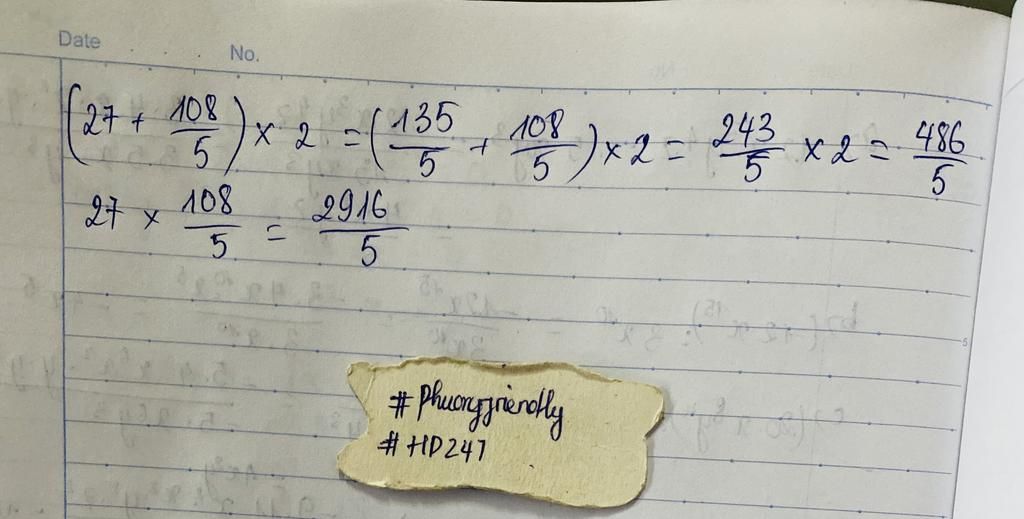 Date
No.
(27 + 108/5) × 2 = (135/5 + 108/5) × 2 = 243/5 × 2 = 486/5
27 × 108/5 = 2916/5
# Phuongfriendly
# HD247